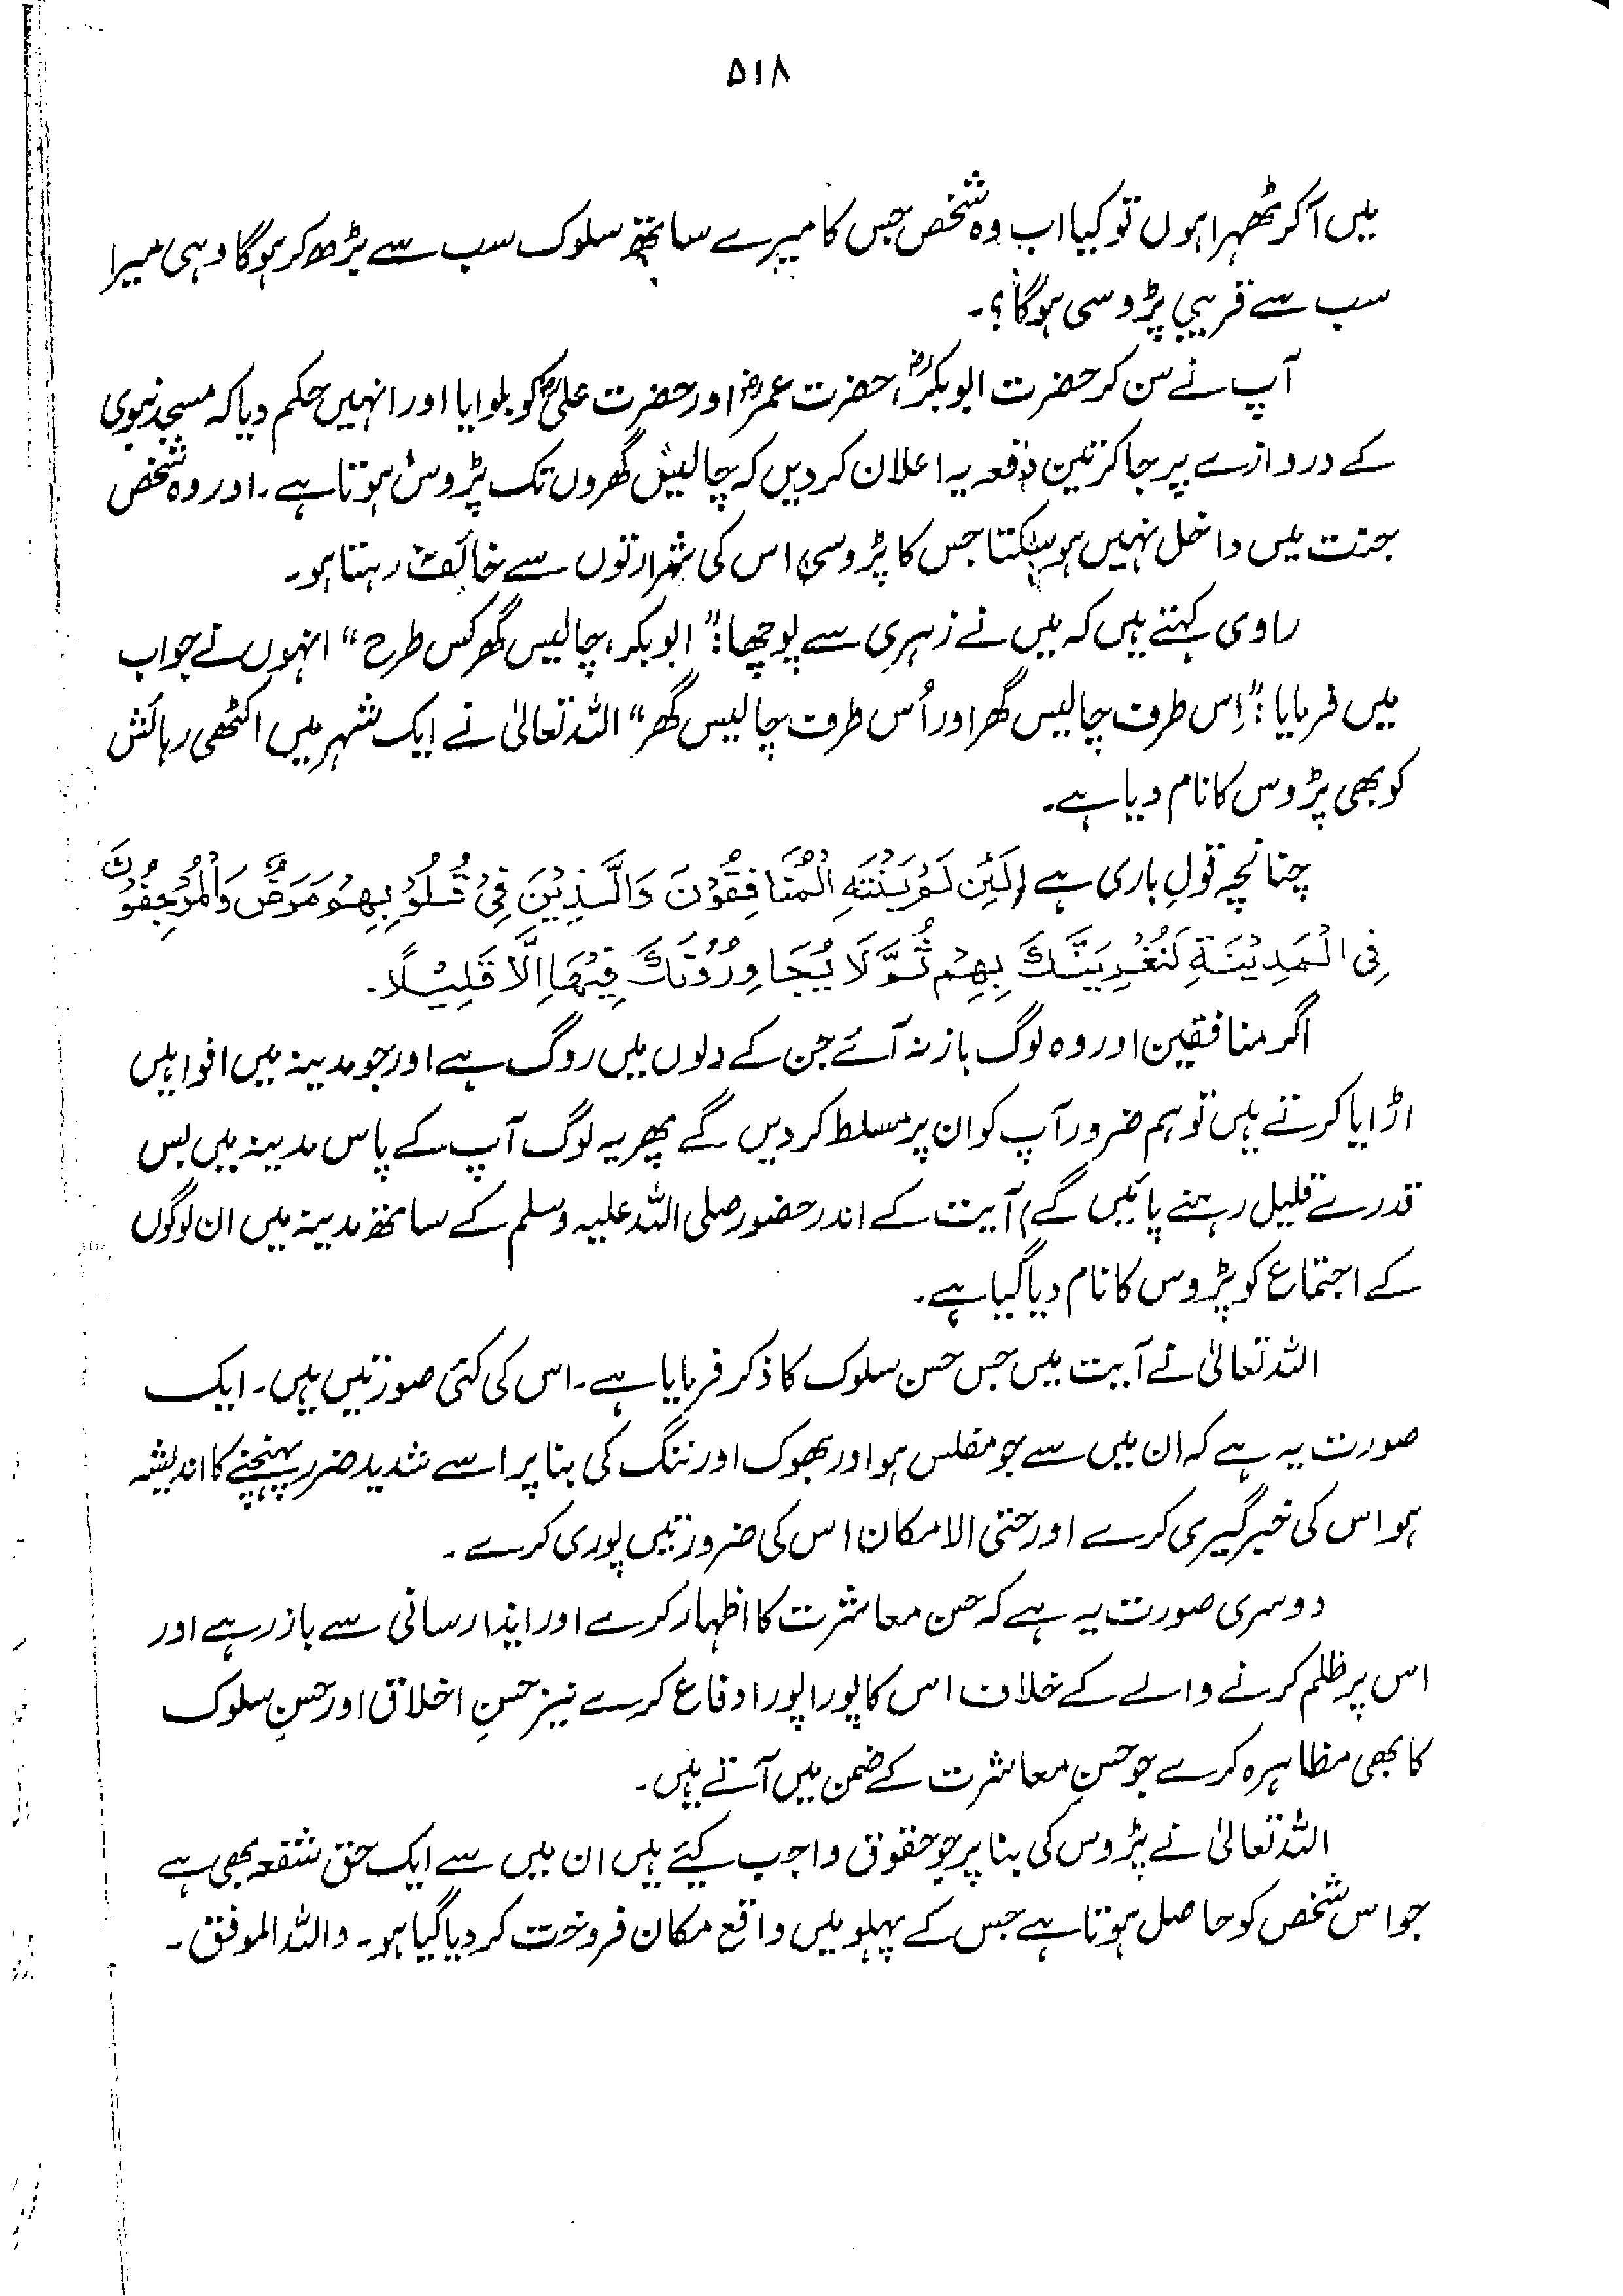 ۵۱۸
میں آکر ٹھہرا ہوں تو کیا اب وہ شخص جس کا میرے ساتھ سلوک سب سے بڑھ کر ہوگا وہی میرا
سب سے قریبی پڑوسی ہوگا؟۔
آپ نے سن کر حضرت ابوبکرؓ، حضرت عمرؓ اور حضرت علیؓ کو بلوایا اور انہیں حکم دیا کہ مسجد نبوی
کے دروازے پر جا کر تین دفعہ یہ اعلان کر دیں کہ چالیس گھروں تک پڑوس ہوتا ہے۔ اور وہ شخص
جنت میں داخل نہیں ہو سکتا جس کا پڑوسی اس کی شرارتوں سے خائف رہتا ہو۔
راوی کہتے ہیں کہ میں نے زہری سے پوچھا: "ابوبکر، چالیس گھر کس طرح" انہوں نے جواب
میں فرمایا: "اِس طرف چالیس گھر اور اُس طرف چالیس گھر" اللہ تعالیٰ نے ایک شہر میں اکٹھی رہائش
کو بھی پڑوس کا نام دیا ہے۔
چنانچہ قولِ باری ہے (لَئِن لَّمْ يَنْتَهِ الْمُنَافِقُوْنَ وَالَّذِيْنَ فِيْ قُلُوْبِهِمْ مَرَضٌ وَالْمُرْجِفُوْنَ
فِى الْمَدِيْنَةِ لَنُغْرِيَنَّكَ بِهِمْ ثُمَّ لَا يُجَاوِرُوْنَكَ فِيْهَا اِلَّا قَلِيْلًا۔
اگر منافقین اور وہ لوگ باز نہ آئے جن کے دلوں میں روگ ہے اور جو مدینہ میں افواہیں
اڑایا کرتے ہیں تو ہم ضرور آپ کو ان پر مسلط کر دیں گے پھر یہ لوگ آپ کے پاس مدینہ میں بس
قدرے قلیل رہنے پائیں گے) آیت کے اندر حضور صلی اللہ علیہ وسلم کے ساتھ مدینہ میں ان لوگوں
کے اجتماع کو پڑوس کا نام دیا گیا ہے۔
اللہ تعالیٰ نے آیت میں جس حسن سلوک کا ذکر فرمایا ہے۔ اس کی کئی صورتیں ہیں۔ ایک
صورت یہ ہے کہ ان میں سے جو مفلس ہو اور بھوک اور ننگ کی بنا پر اسے شدید ضرر پہنچنے کا اندیشہ
ہو اس کی خبرگیری کرے اور حتی الامکان اس کی ضرورتیں پوری کرے۔
دوسری صورت یہ ہے کہ حسن معاشرت کا اظہار کرے اور ایذا رسانی سے باز رہے اور
اس پر ظلم کرنے والے کے خلاف اس کا پورا پورا دفاع کرے نیز حسنِ اخلاق اور حسنِ سلوک
کا بھی مظاہرہ کرے جو حسنِ معاشرت کے ضمن میں آتے ہیں۔
اللہ تعالیٰ نے پڑوس کی بنا پر جو حقوق واجب کیئے ہیں ان میں سے ایک حق شفعہ بھی ہے
جو اس شخص کو حاصل ہوتا ہے جس کے پہلو میں واقع مکان فروخت کر دیا گیا ہو۔ واللہ الموفق۔